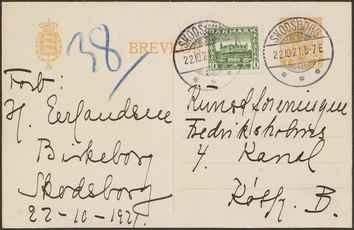 BREV
38/
SKODSBORG
22.10.21. 5-7 E
SKODSBORG
22.10.21. 5-7 E
Forb:
H. Erlandsen
Birkeborg
Skodsborg
22-10-1921.
Kunstforeningen
Frederiksholms
4 Kanal
Kbh. B.